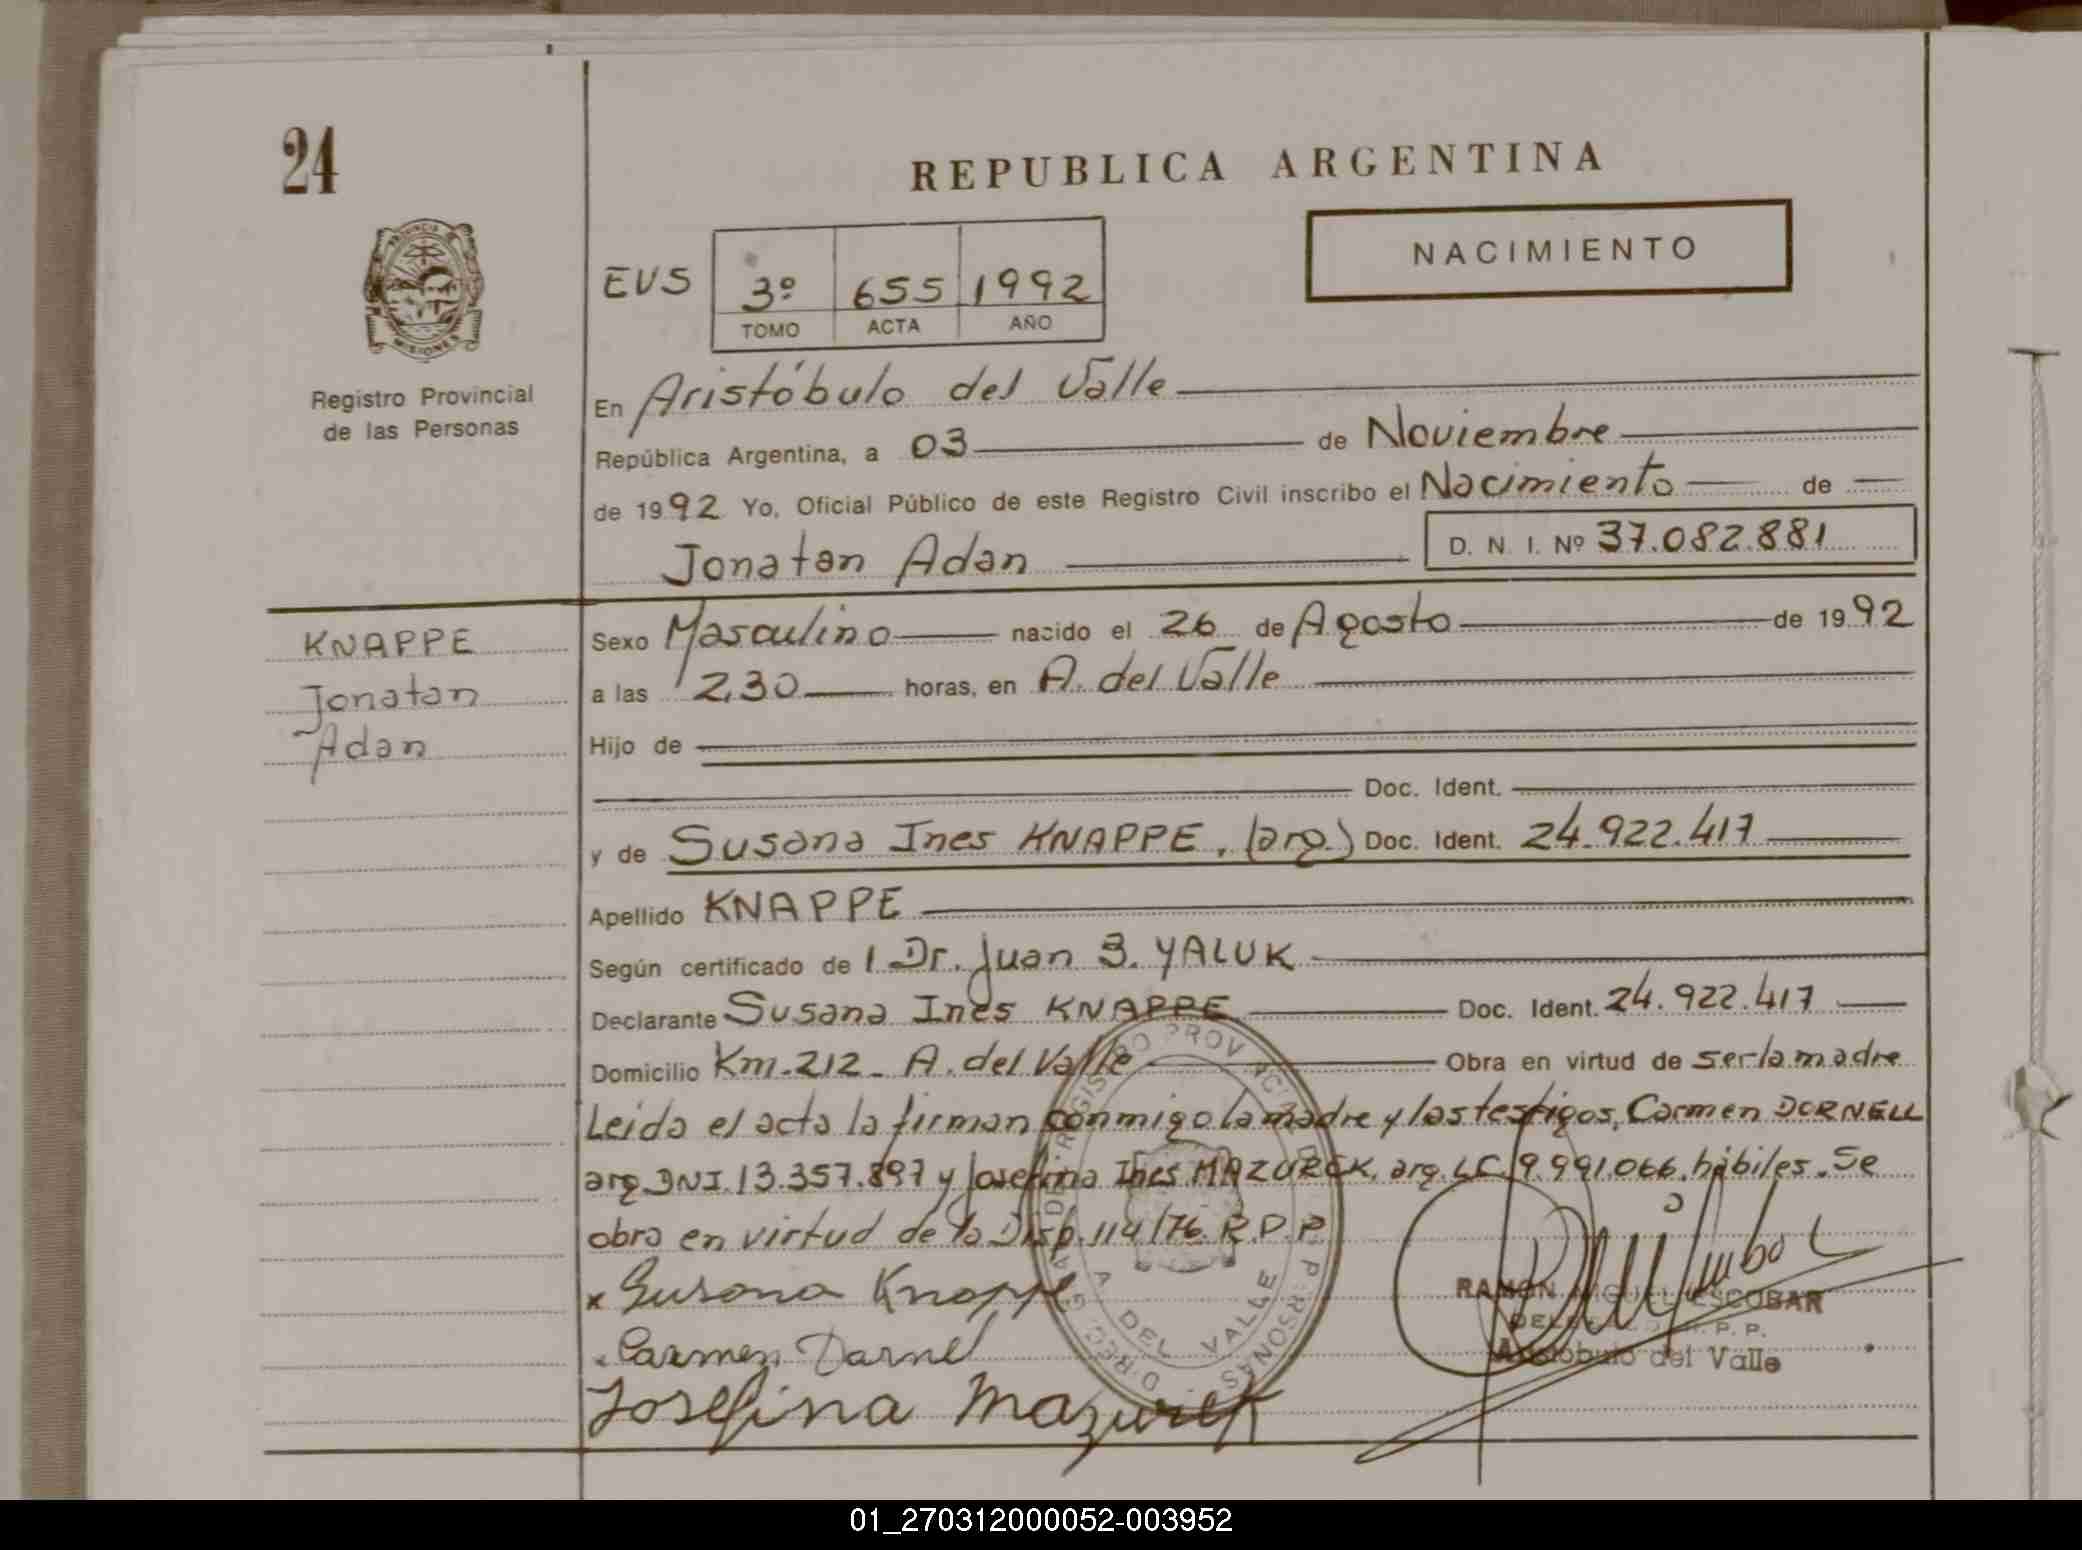 24
REPUBLICA ARGENTINA
NACIMIENTO
EVS 3º 655 1992
TOMO ACTA AÑO
PROVINCIA DE MISIONES
Registro Provincial
de las Personas
En Aristóbulo del Valle
República Argentina, a 03 de Noviembre
de 1992 Yo, Oficial Público de este Registro Civil inscribo el Nacimiento de
Jonatan Adan D. N. I. Nº 37.082.881
KNAPPE
Jonatan
Adan
Sexo Masculino nacido el 26 de Agosto de 1992
a las 12,30 horas, en A. del Valle
Hijo de
Doc. Ident.
y de Susana Ines KNAPPE, (arg.) Doc. Ident. 24.922.417
Apellido KNAPPE
Según certificado de l Dr. Juan B. YALUK
Declarante Susana Ines KNAPPE Doc. Ident. 24.922.417
Domicilio Km. 212 - A. del Valle Obra en virtud de ser la madre
Leida el acta la firman conmigo la madre y los testigos, Carmen DORNELL
arg. DNI. 13.357.897 y Josefina Ines MAZUREK, arg. LC. 9.991.066. hábiles. Se
obra en virtud de la Disp. 114/76. R.P.P.
x Susana Knappe
Carmen
Josefina Mazurek
REGISTRO PROVINCIAL DE LAS PERSONAS
A. DEL VALLE
RAMON MIGUEL ESCOBAR
DELEGADO R. P. P.
Aristóbulo del Valle
01_270312000052-003952